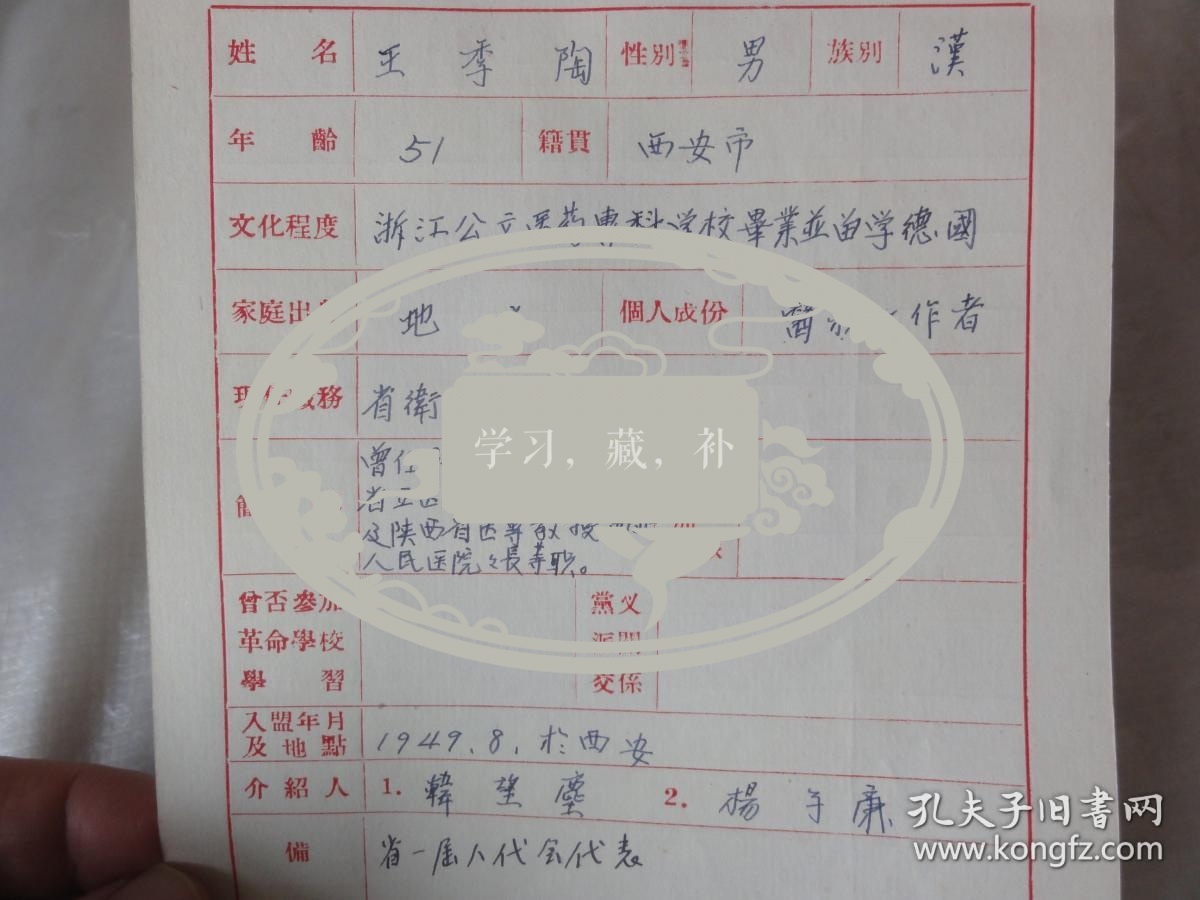 姓名 王季陶 性別 男 族別 漢
年齡 51 籍貫 西安市
文化程度 浙江公立医药專科学校畢業並留学德國
家庭出 地 個人成份 醫 作者
務 省衛
学习，藏，补
曾任
省立医
及陕西省医專教授
人民医院院長等职。
曾否參加 黨
革命學校 派
學習 交係
入盟年月
及地點 1949.8.於西安
介紹人 1. 韓望塵 2. 楊子廉
備 省一届人代会代表
孔夫子旧书网
www.kongfz.com